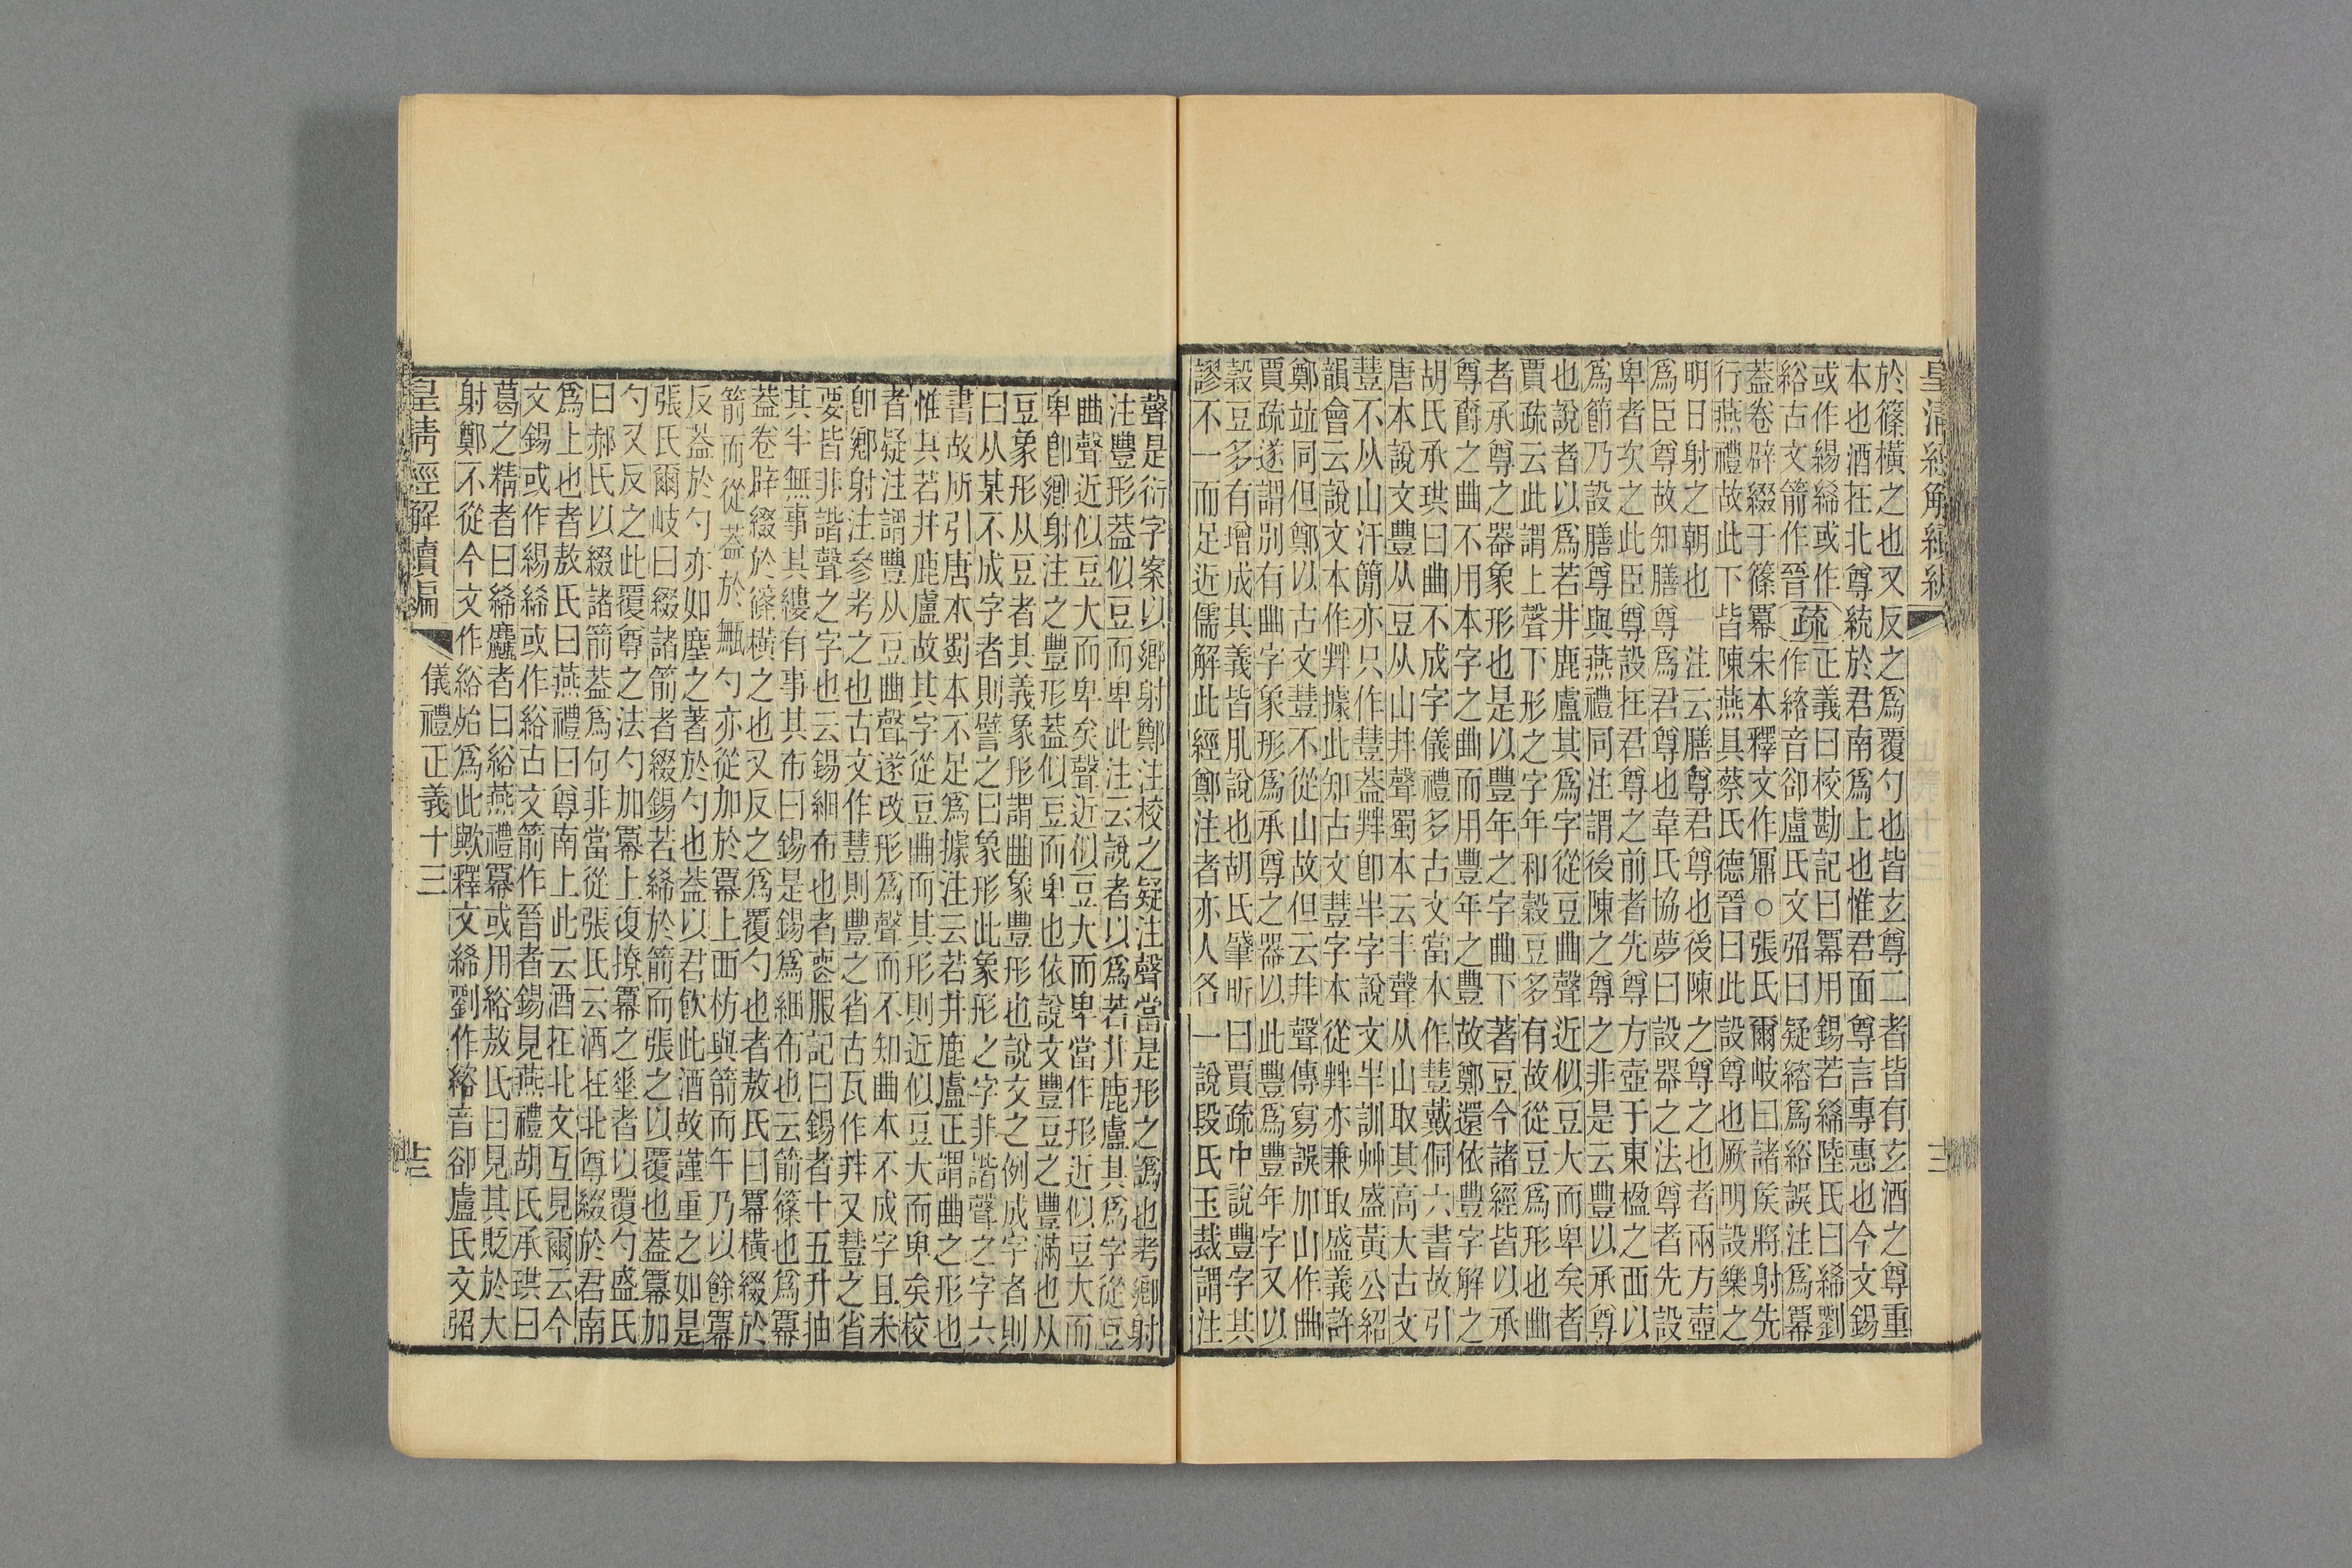 皇清經解續編
於篠橫之也又反之爲覆勺也皆玄尊二者皆有玄酒之尊重
本也酒在北尊統於君南爲上也惟君面尊言專惠也今文錫
或作緆絺或作
綌古文箭作晉
疏
正義曰校勘記曰冪用錫若絺陸氏曰絺劉
作綌音卻盧氏文弨曰疑綌爲綌誤注爲冪
蓋卷辟綴于篠冪宋本釋文作鼏○張氏爾岐曰諸侯將射先
行燕禮故此下皆陳燕具蔡氏德晉曰此設尊也厥明設樂之
明日射之朝也 注云膳尊君尊也後陳之尊之也者兩方壺
爲臣尊故知膳尊爲君尊也韋氏協夢曰設器之法尊者先設
卑者次之此臣尊設在君尊之前者先尊方壺于東楹之西以
爲節乃設膳尊與燕禮同注謂後陳之尊之非是云豐以承尊
也說者以爲若井鹿盧其爲字從豆曲聲近似豆大而卑矣者
賈疏云此謂上聲下形之字年和穀豆多有故從豆爲形也曲
者承尊之器象形也是以豐年之字曲下著豆今諸經皆以承
尊爵之曲不用本字之曲而用豐年之豐故鄭還依豐字解之
胡氏承珙曰曲不成字儀禮多古文當本作豊戴侗六書故引
唐本說文豐从豆从山聲蜀本云丰聲从山取其高大古文
豊不从山汗簡亦只作豊蓋卽半字說文半訓艸盛黃公紹
韻會云說文本作據此知古文豊字本從亦兼取盛義許
鄭竝同但鄭以古文豊不從山故但云聲傳寫誤加山作曲
賈疏遂謂別有曲字象形爲承尊之器以此豐爲豐年字又以
穀豆多有增成其義皆肊說也胡氏肇昕曰賈疏中說豐字其
謬不一而足近儒解此經鄭注者亦人各一說段氏玉裁謂注
聲是衍字案以鄉射鄭注校之疑注聲當是形之譌也考鄉射
注豐形蓋似豆而卑此注云說者以爲若井鹿盧其爲字從豆
曲聲近似豆大而卑矣聲近似豆大而卑當作形近似豆大而
卑卽鄉射注之豐形蓋似豆而卑也依說文豐豆之豐滿也从
豆象形从豆者其義象形謂曲象豐形也說文之例成字者則
曰从某不成字者則譬之曰象形此象形之字非諧聲之字六
書故所引唐本蜀本不足爲據注云若井鹿盧正謂曲之形也
惟其若井鹿盧故其字從豆曲而其形則近似豆大而卑矣校
者疑注謂豐从豆曲聲遂改形爲聲而不知曲本不成字且未
卽鄉射注參考之也古文作豊則豐之省古瓦作又豊之省
要皆非諧聲之字也云錫細布也者喪服記曰錫者十五升抽
其半無事其縷有事其布曰錫是錫爲細布也云箭篠也爲冪
蓋卷辟綴於篠橫之也又反之爲覆勺也者敖氏曰冪橫綴於
箭而從蓋於甒勺亦從加於冪上面枋與箭而午乃以餘冪
反蓋於勺亦如塵之著於勺也蓋以君飲此酒故謹重之如是
張氏爾岐曰綴諸箭者綴錫若絺於箭而張之以覆也蓋冪加
勺又反之此覆尊之法勺加冪上復撩冪之垂者以覆勺盛氏
曰郝氏以綴諸箭蓋爲句非當從張氏云酒在北尊綴於君南
爲上也者敖氏曰燕禮曰尊南上此云酒在北文互見爾云今
文錫或作緆絺或作綌古文箭作晉者錫見燕禮胡氏承珙曰
葛之精者曰絺麤者曰綌燕禮冪或用綌敖氏曰見其貶於大
射鄭不從今文作綌殆爲此歟釋文絺劉作綌音卻盧氏文弨
皇清經解續編 儀禮正義十三 十三